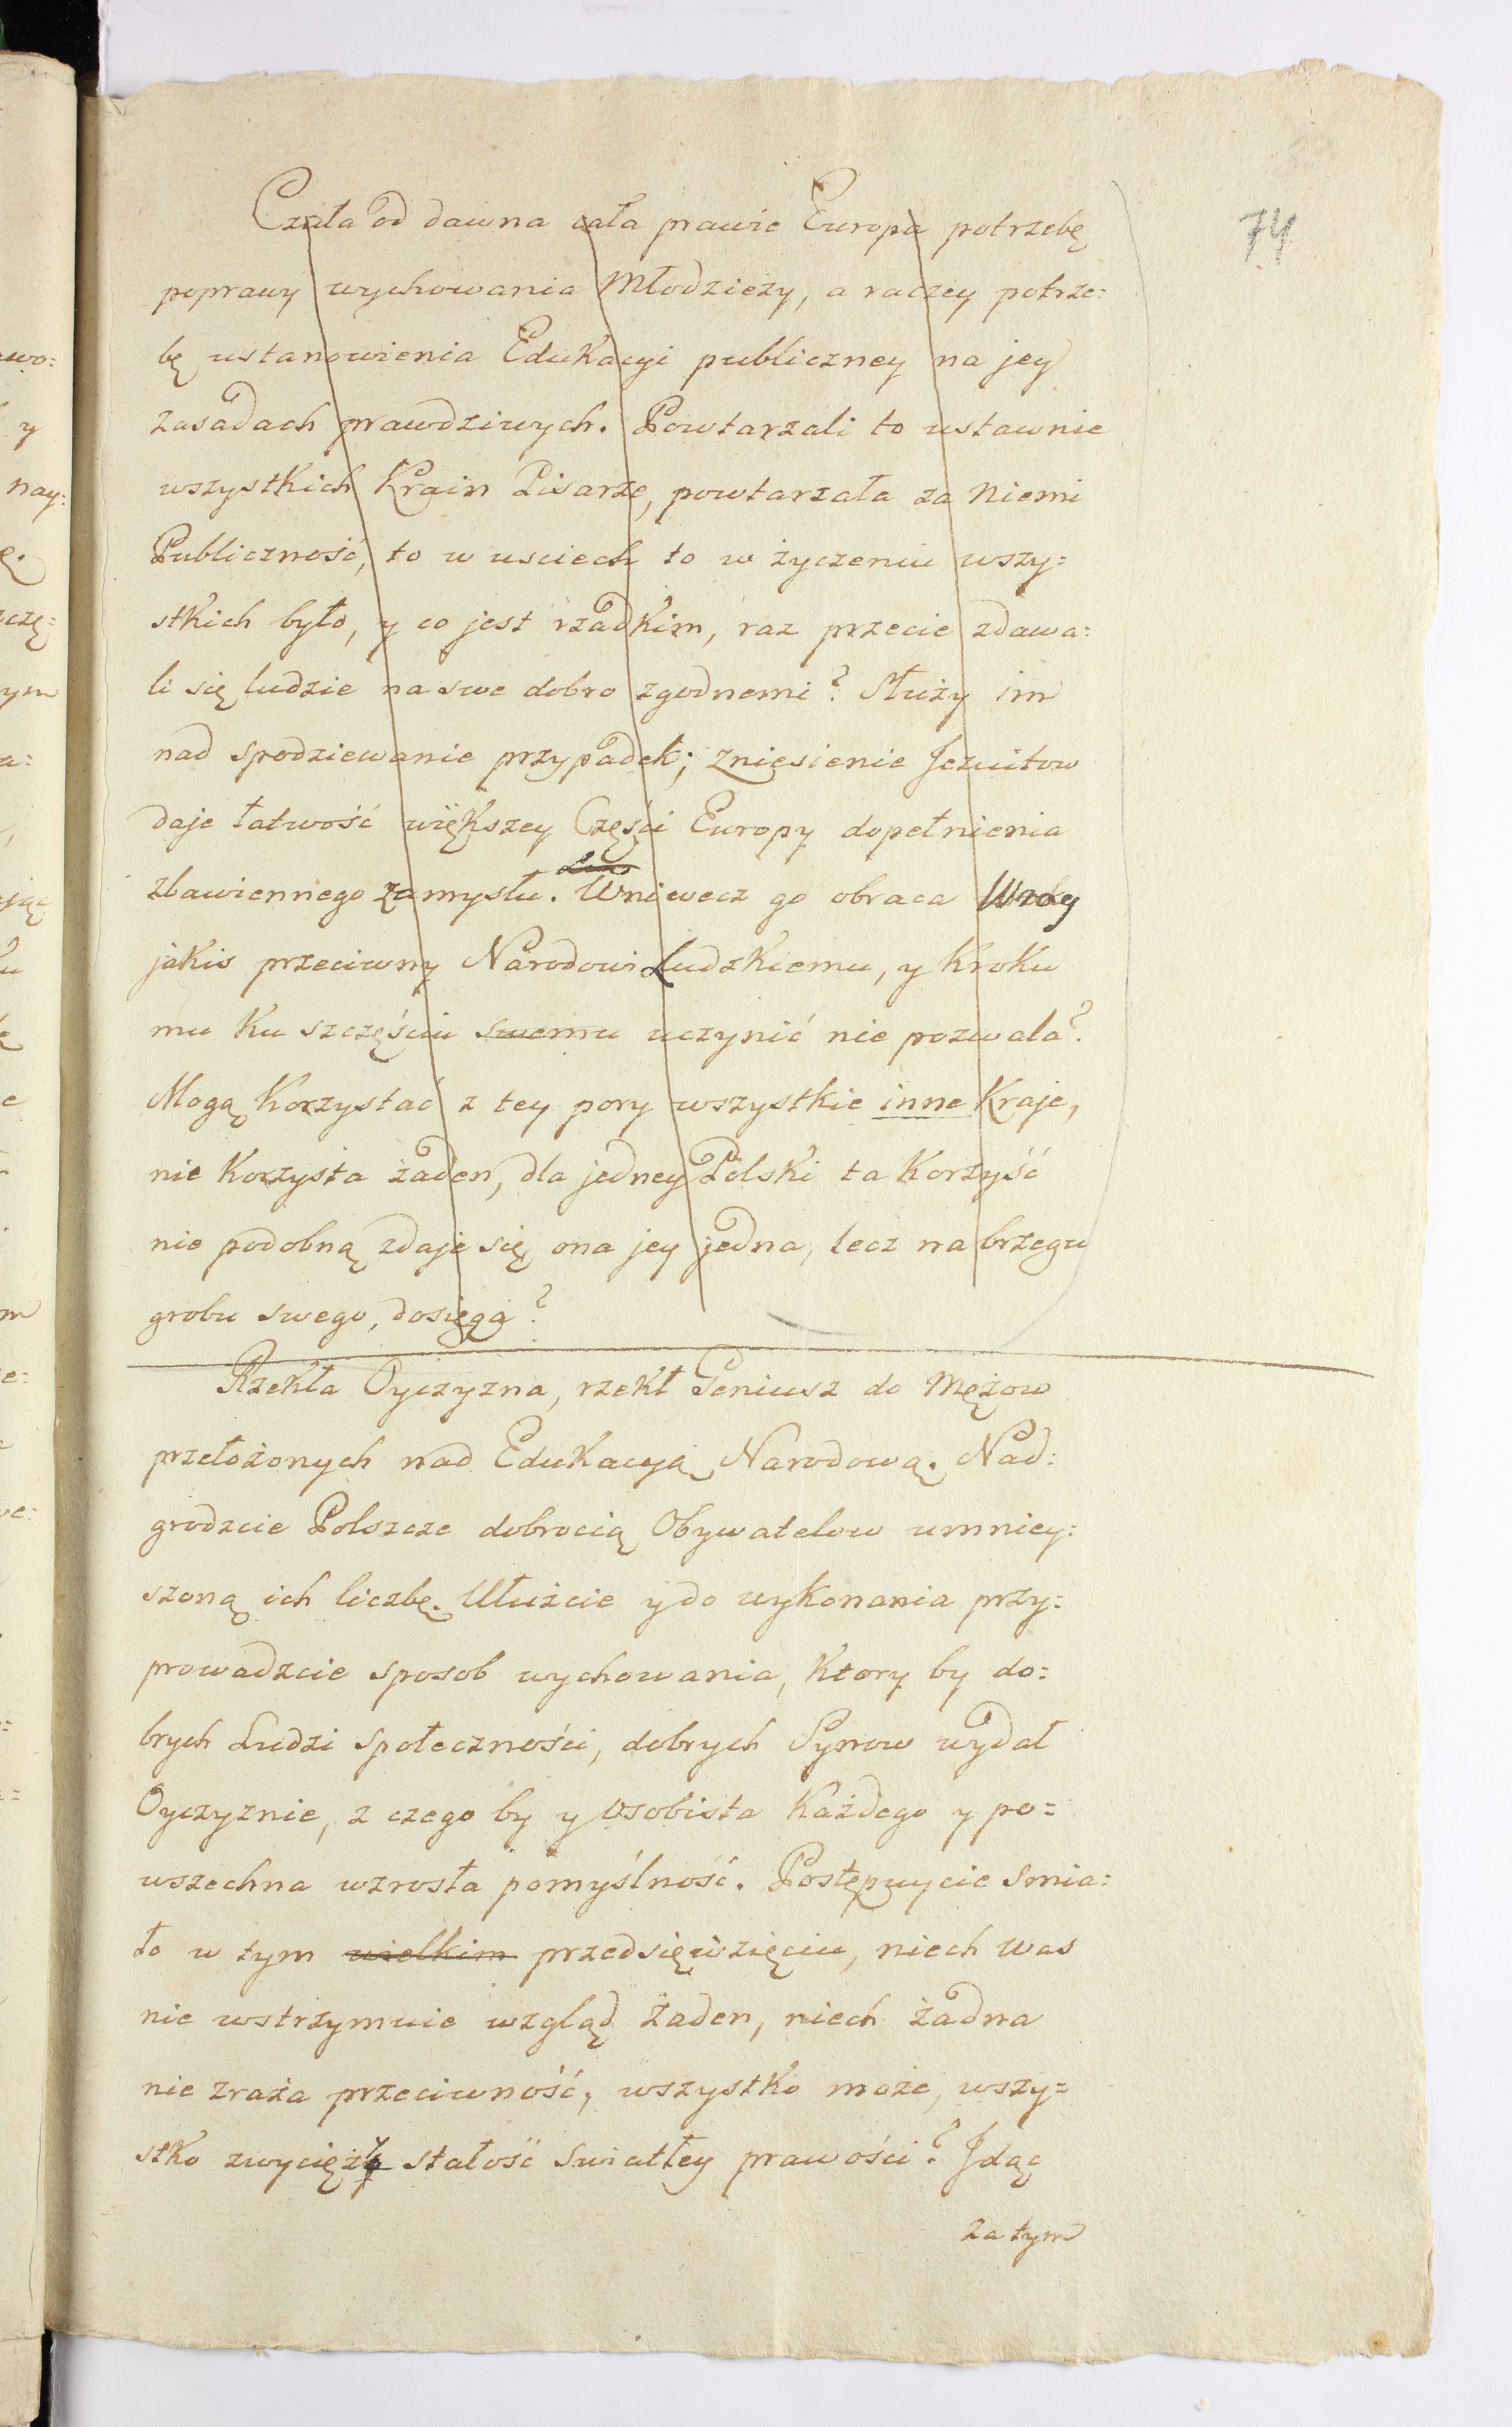 74
Czuła od dawna cała prawie Europa potrzebę
poprawy wychowania Młodzieży, a raczey potrze:
bę ustanowienia Edukacyi publiczney na jey
zasadach prawdziwych. Powtarzali to ustawnie
wszystkich Krain Pisarze, powtarzała za niemi
Publiczność, to w usciech to w życzeniu wszy=
stkich było, y co jest rzadkim, raz przecie zdawa:
li się ludzie na swe dobro zgodnemi? Służy im
nad spodziewanie przypadek; zniesienie Jezuitow
daje łatwość większey Części Europy dopełnienia
zbawiennego zamysłu. Wniwecz go obraca
jakis przeciwny Narodowi Ludzkiemu, y kroku
mu ku szczęściu swemu uczynić nie pozwala?
Mogą korzystać z tey pory wszystkie inne Kraje,
nie korzysta żaden, dla jedney Polski ta korzyść
nie podobną zdaje się, ona jey jedna, lecz na brzegu
grobu swego, dosięga?
Rzekła Oyczyzna, rzekł Geniusz do Mężow
przełożonych nad Edukacyą Narodową. Nad:
grodzcie Polszcze dobrocią Obywatelow umniey:
szoną ich liczbę. Ułużcie y do wykonania przy:
prowadzcie sposob wychowania, ktory by do:
brych Ludzi społeczności, dobrych Synow wydał
Oyczyznie, z czego by y osobista każdego y po=
wszechna wzrosła pomyślność. Postępuycie smia:
ło w tym wielkim przedsięwzięciu, niech was
nie wstrzymuie wzgląd żaden, niech żadna
nie zraża przeciwność, wszystko może, wszy=
stko zwycięży stałość swiatłey prawości? Idąc
za tym